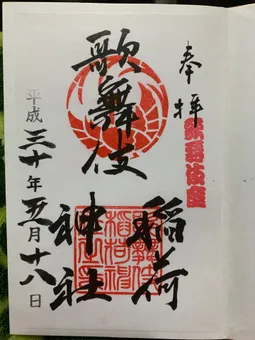 奉拝
歌舞伎座
歌舞伎
稲荷
神社
平成三十年五月十八日